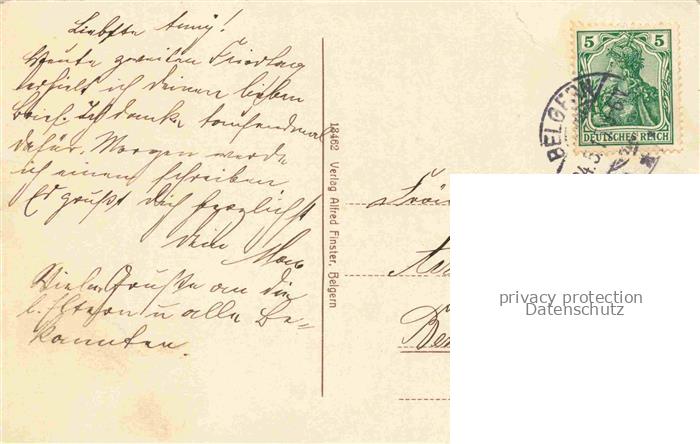 Liebste Anny!
Heute zweiten Friedtag
erhielt ich deinen lieben
Brief. Ich danke tausendmal
dafür. Morgen werde
ich einen schreiben
Es grüßt dich herzlichst
dein Max
Viele Grüße an die
l. Eltern u alle Be-
kannten.
18462 Verlag Alfred Finster, Belgern
5 5
DEUTSCHES REICH
BELGERN
privacy protection
Datenschutz